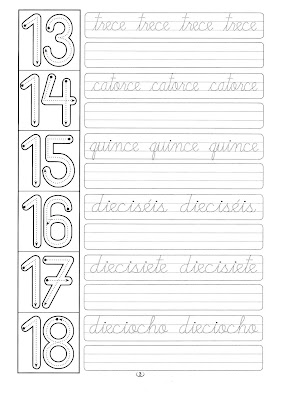 13
trece trece trece trece
14
catorce catorce catorce
15
quince quince quince
16
dieciséis dieciséis
17
diecisiete diecisiete
18
dieciocho dieciocho